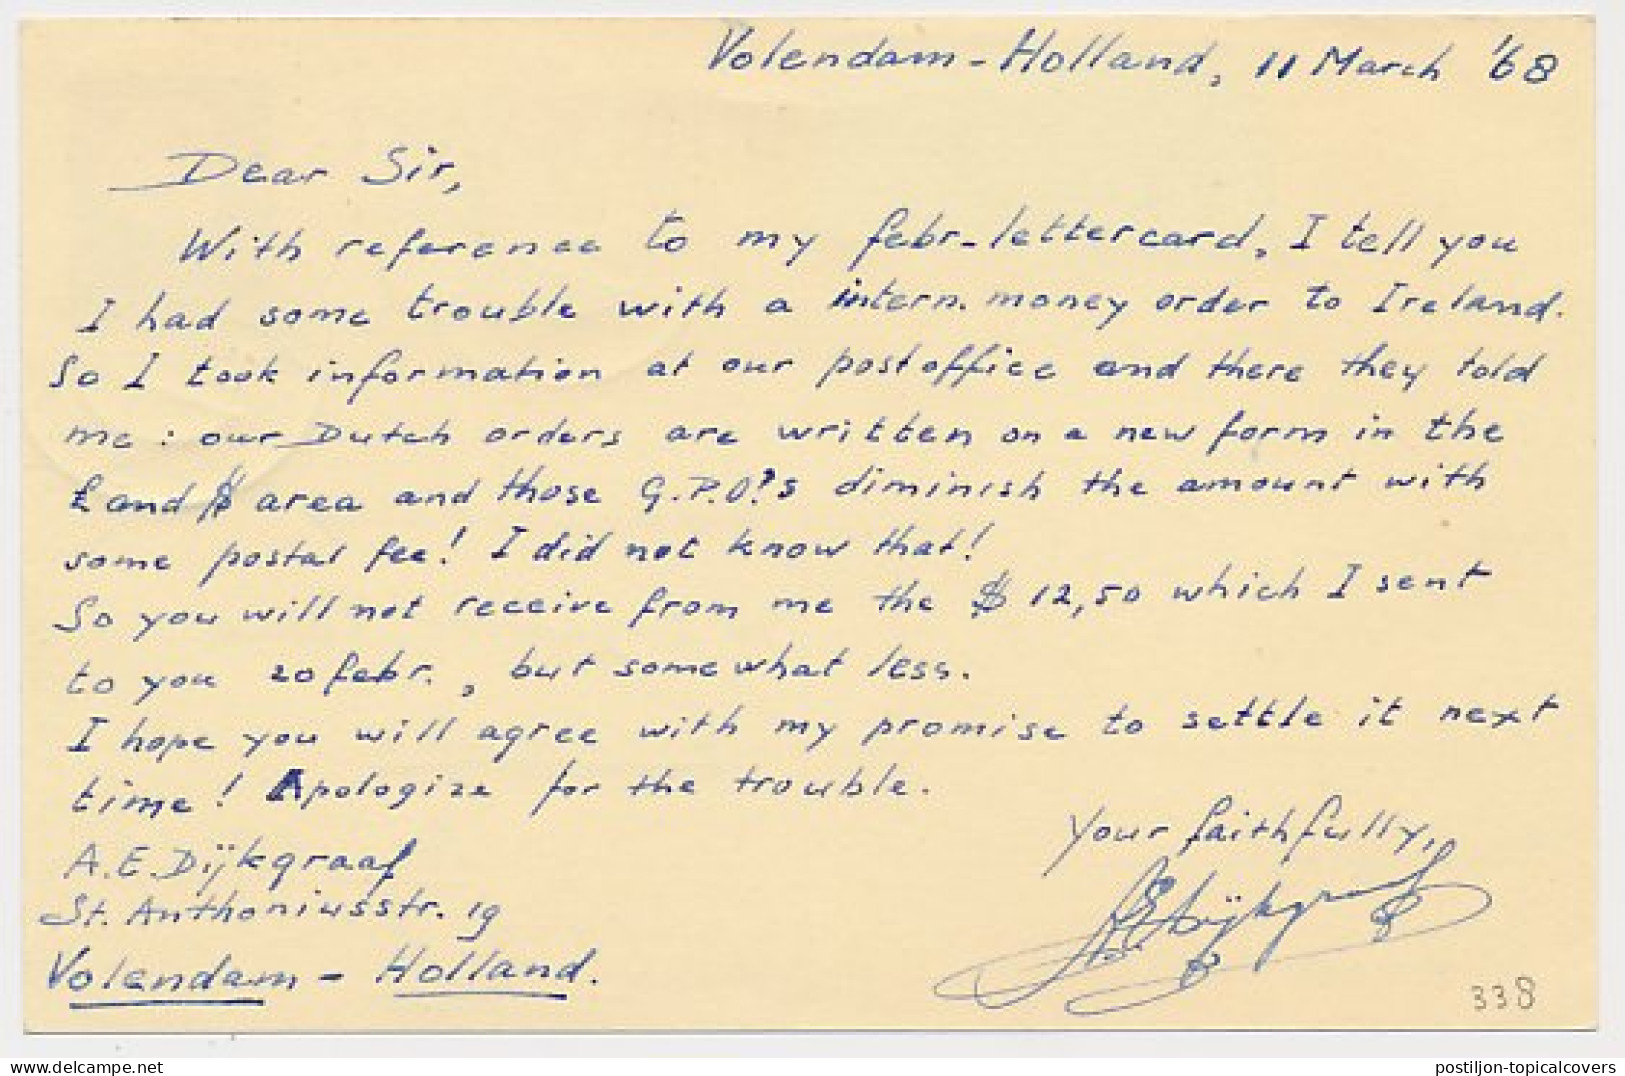 Volendam - Holland, 11 March '68
Dear Sir,
With reference to my febr-lettercard, I tell you
I had some trouble with a intern. money order to Ireland.
So I took information at our postoffice and there they told
me: our Dutch orders are written on a new form in the
£ and $ area and those G.P.O?s diminish the amount with
some postal fee! I did not know that!
So you will not receive from me the $ 12,50 which I sent
to you 20 febr., but somewhat less.
I hope you will agree with my promise to settle it next
time! Apologize for the trouble.
Your faithfully,
A.E. Dijkgraaf
A.E. Dijkgraaf
St. Anthoniusstr. 19
Volendam - Holland.
338
postiljon-topicalcovers
delcampe.net